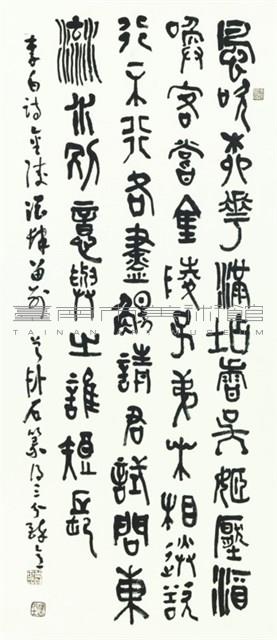 風吹柳花滿店香吳姬壓酒
喚客嘗金陵子弟來相送欲
行不行各盡觴請君試問東
流水別意與之誰短長
李白詩金陵酒肆留別 石篆得三分
臺南市美術館
TAINAN ART MUSEUM